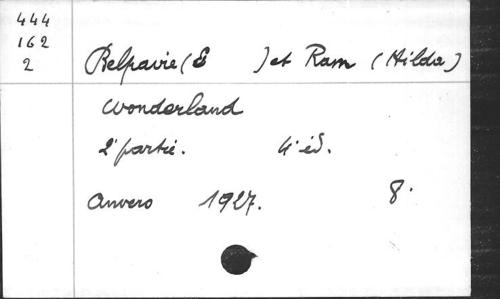 444
162
2
Belpaire (E ) et Ram (Hilda)
Wonderland
2e partie. 4e éd.
Anvers 1927. 8°